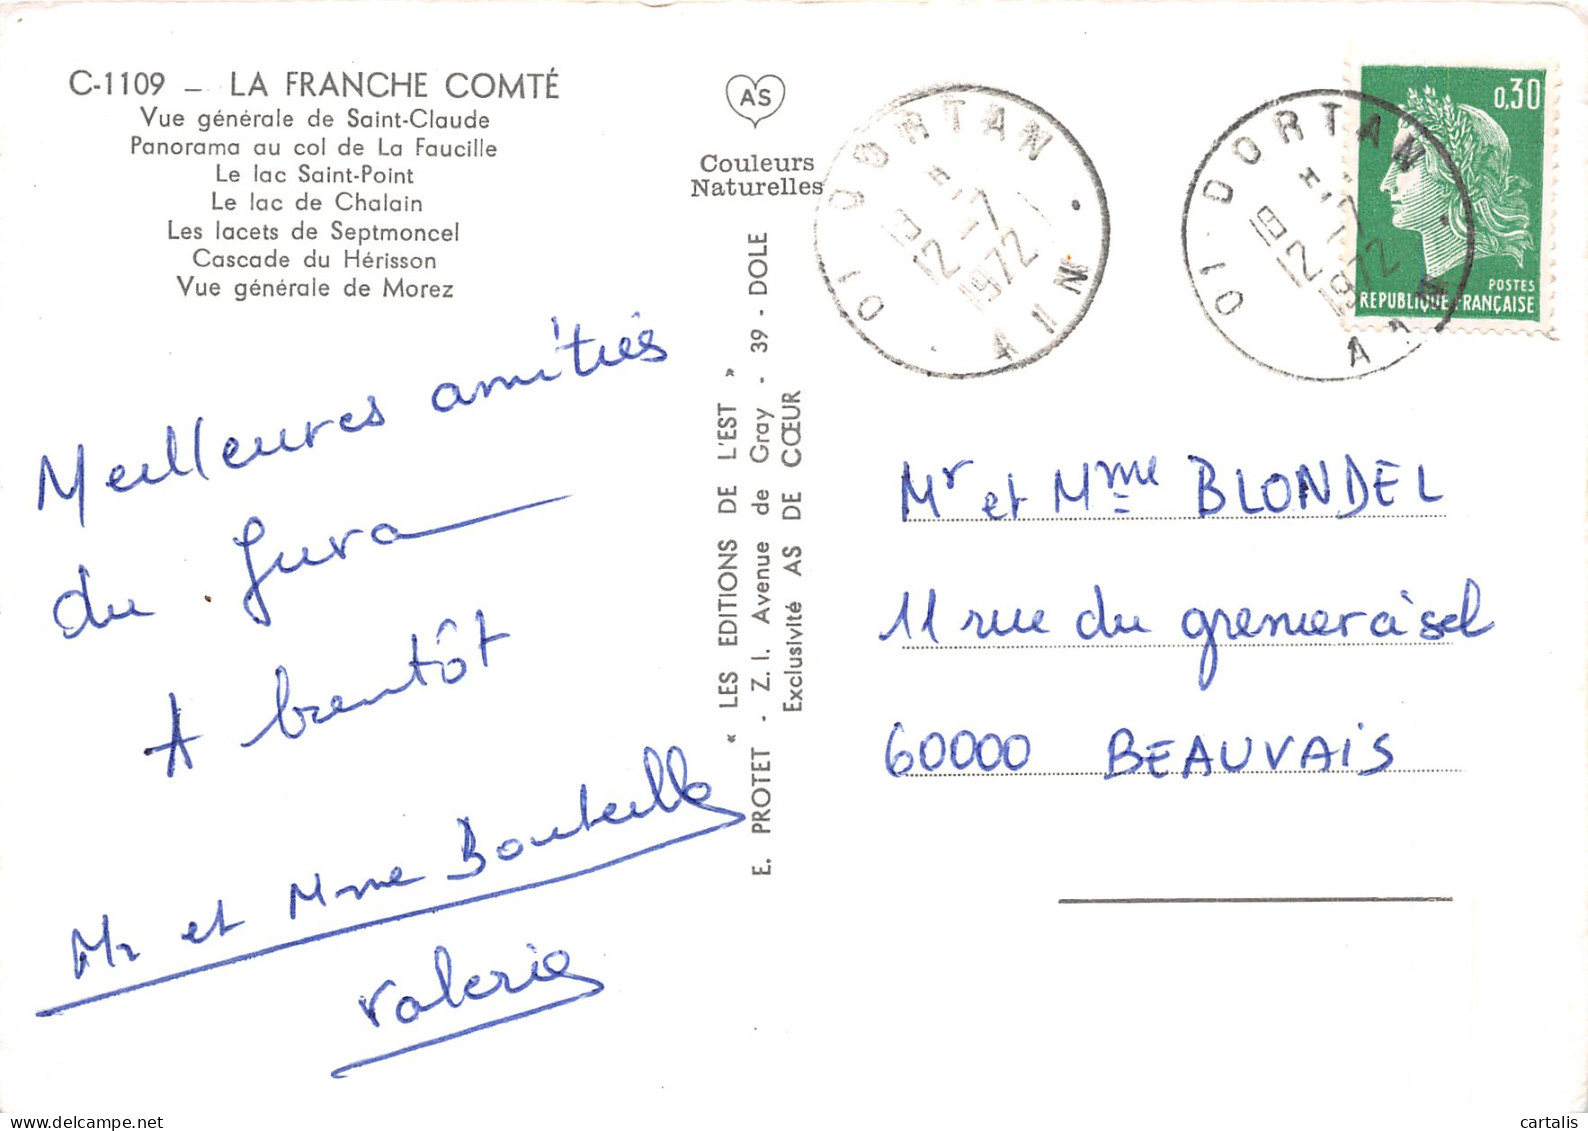 C-1109 — LA FRANCHE COMTÉ
Vue générale de Saint-Claude
Panorama au col de La Faucille
Le lac Saint-Point
Le lac de Chalain
Les lacets de Septmoncel
Cascade du Hérisson
Vue générale de Morez
Meilleures amitiés
du Jura
A bientôt
Mr et Mme Bouteille
Valerie
AS
Couleurs
Naturelles
« LES EDITIONS DE L'EST »
E. PROTET - Z. I. Avenue de Gray - 39 - DOLE
Exclusivité AS DE CŒUR
01 DORTAN
19 H
12 -7
1972
AIN
01 DORTAN
19 H
12 -7
1972
AIN
0,30
POSTES
REPUBLIQUE FRANÇAISE
Mr et Mme BLONDEL
11 rue du grenier à sel
60000 BEAUVAIS
delcampe.net
cartalis